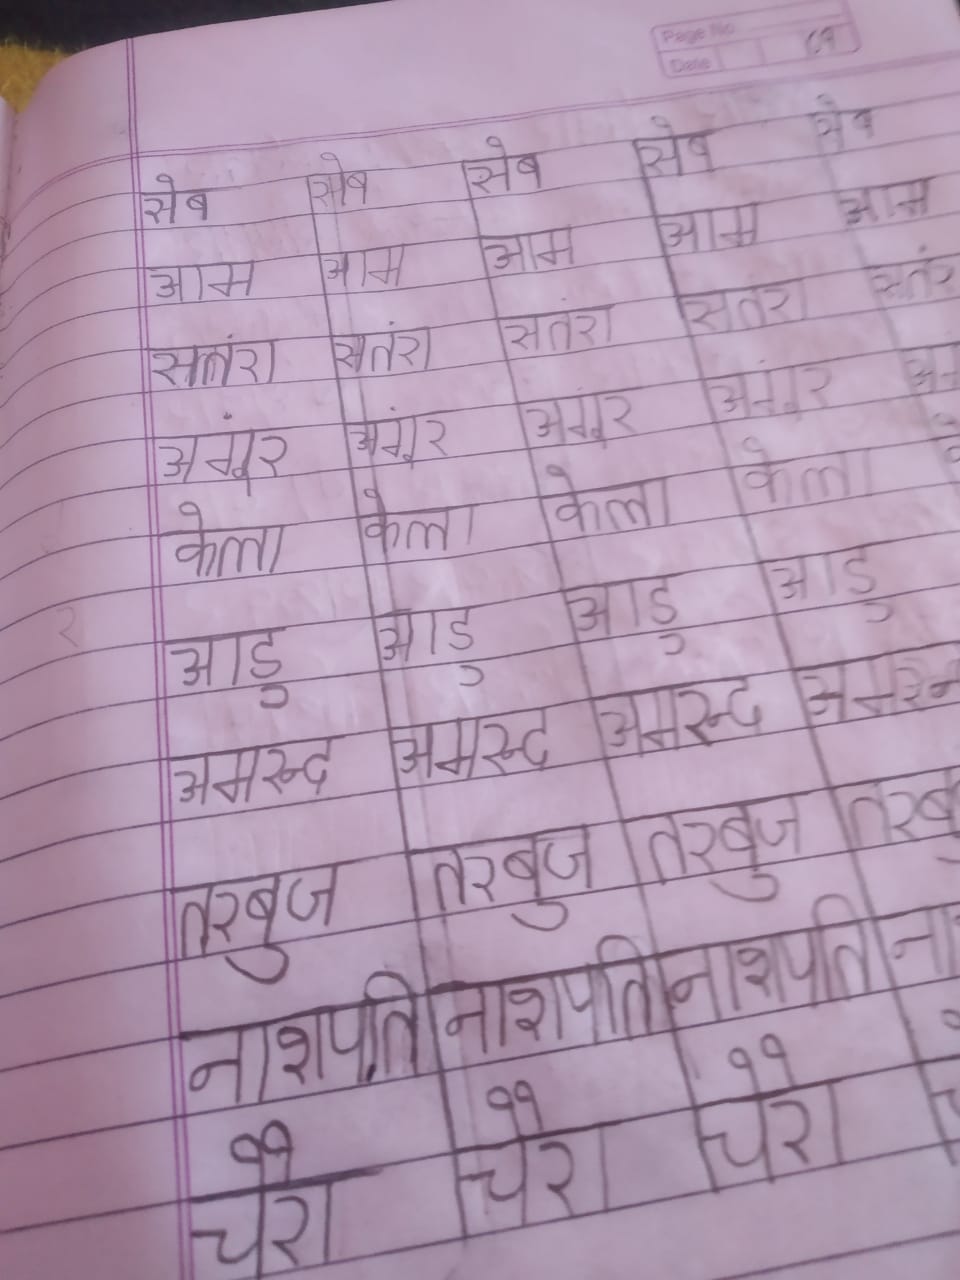 Page No
Date
सेब सेब सेब सेब सेब
आम आम आम आम आम
सतंरा सतंरा सतंरा सतंरा
अगूंर अगूंर अगूंर अगूंर
केला केला केला केला
आडु आडु आडु आडु
अमरुद अमरुद अमरुद
तरबुज तरबुज तरबुज
नाशपति नाशपति नाशपति
चेरी चेरी चेरी